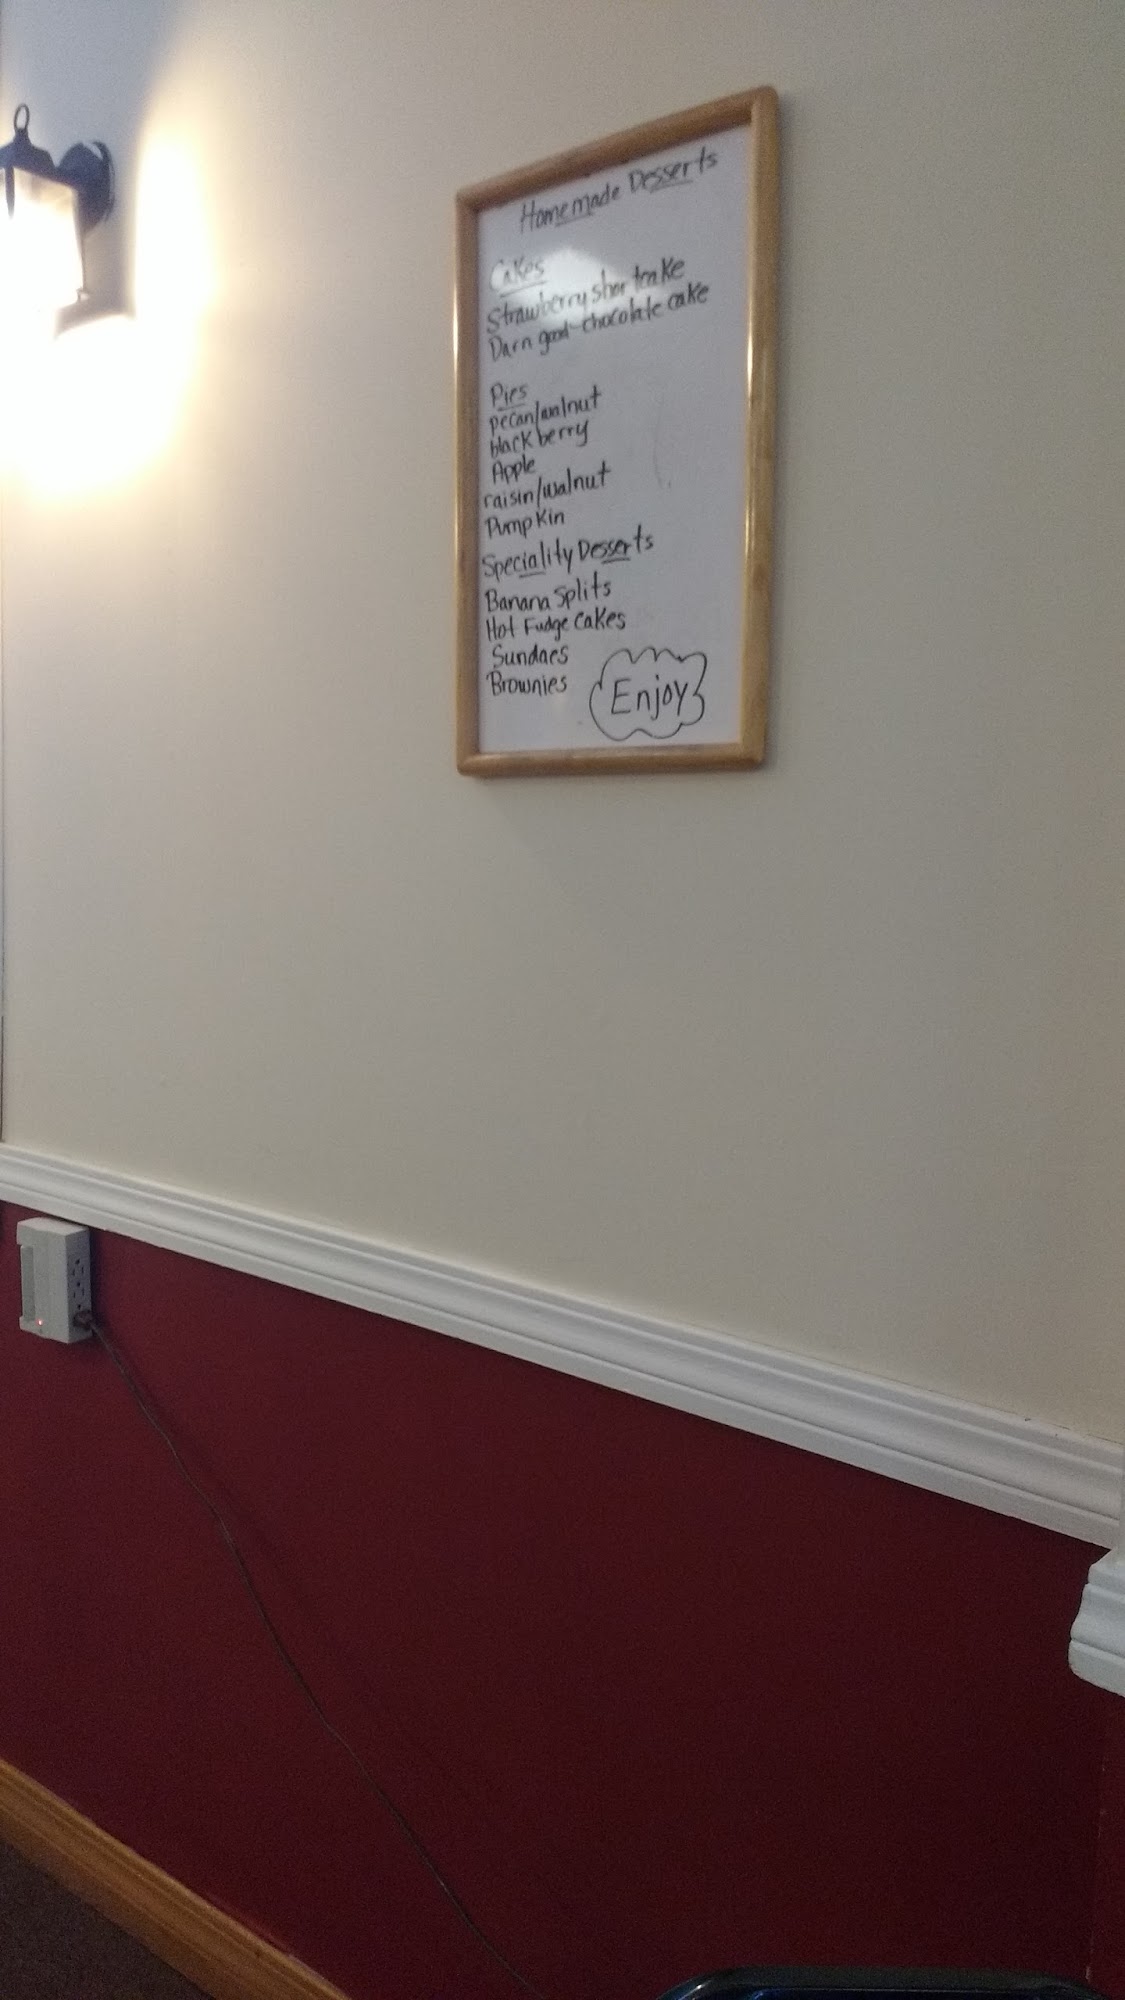 Homemade Desserts
Cakes
Strawberry shortcake
Darn good chocolate cake
Pies
pecan/walnut
blackberry
Apple
raisin/walnut
Pumpkin
Speciality Desserts
Banana Splits
Hot Fudge Cakes
Sundaes
Brownies
Enjoy